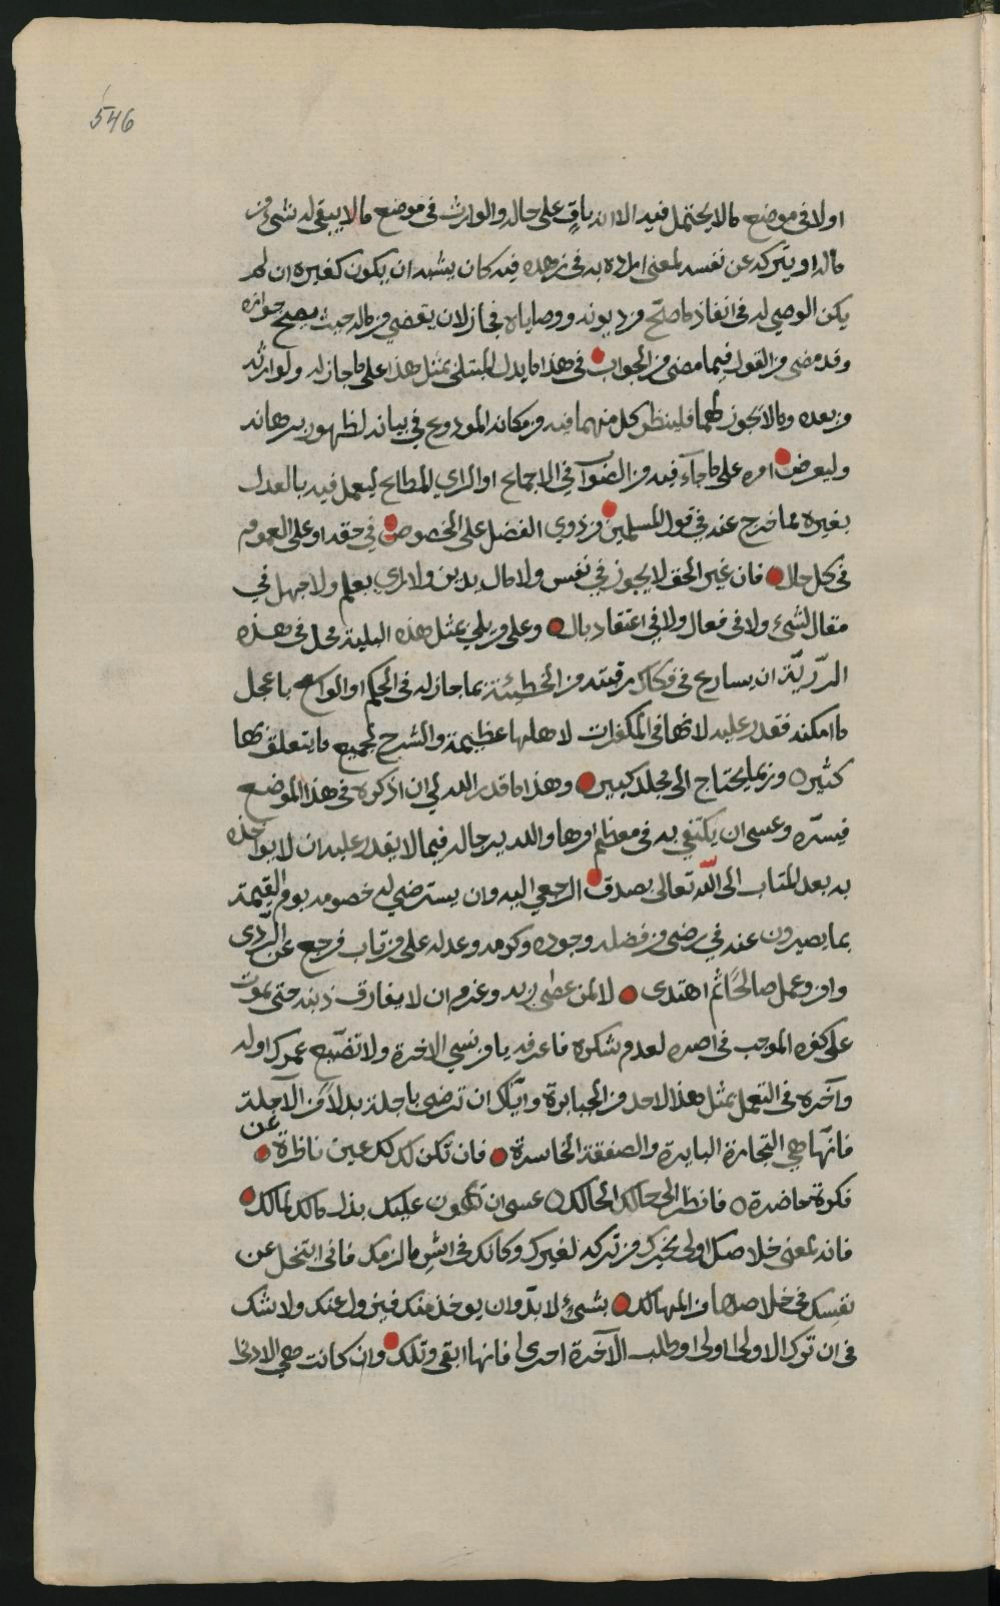 546
اولا في موضع ما لا يحتمل فيه الا انه باقٍ على حاله والوارث في موضع ما لا يبقى له شيء من
ماله او يتركه عن نفسه لمعنى اراده به في زهده فيه كان يشبه ان يكون كغيره ان لم
يكن الوصي له في انفاذ ما صحّ من ديونه ووصاياه فجاز لان يقضي من ماله حيث يصح جوازه
وقد مضى من القول فيما مضى من الجواب في هذا ما يدل المبتلى بمثل هذا على ما جاز له ولوارثه
من بعده وما لا يجوز لهما فلينظر كل منهما فيه من مكانه المودوع في بيانه لظهور برهانه
وليعرض امره على ما جاء فيه من الصواب في الاجماع او الراي المطاع ليعمل فيه بالعدل
بغيره مما خرج عنه في قول المسلمين من ذوي الفضل على الخصوص في حقه او على العموم
في كل حال فان غير الحق لا يجوز في نفس ولا مال بدين ولا راي بعلم ولا جهل في
مقال لشيء ولا في فعال ولا في اعتقاد بال وعلى من بلي بمثل هذه البلية محل في هذه
الرّزيّة ان يسارع في فكاك رقبته من الخطيئة بما جاز له في الحكم او الواسع باعجل
ما امكنه فقدر عليه لانها في المكفرات لاهلها عظيمة والشرح لجميع ما يتعلق بها
كثير وربما يحتاج الى مجلد كبير وهذا ما قدر الله لي ان اذكره في هذا الموضع
فيسّره وعسى ان يكتفي به في معظم امرها والله يرحاله فيما لا يقدر عليه ان لا يواخذه
به بعد المتاب الى الله تعالى بصدق الرجعى اليه وان يسترضي له خصومه يوم القيمة
بما يصيرون عنه في رضى من فضله وجوده وكرمه وعدله على من تاب فرجع عن الرّدى
وامن وعمل صالحًا ثم اهتدى لا لمن عصى ربه وعزم ان لا يفارق ذنبه حتى يموت
على كفره الموجب في اصره لعدم شكره فاعرفه يا من نسي الاخرة ولا تضيّع عمرك اوله
وآخره في التعمل بمثل هذا لاحد من الجبابرة وايّاك ان ترضى باجلة بدلاً من الآجلة
فانّها هي التجارة البايرة والصفقة الخاسرة فان تكن لك كل عين ناظرة عن
فكرة حاضرة فانظر الى حالك الحالك عسى ان تهون عليك بذل مالك لمالك
فانه لمعنى خلاصك اولى بخيرك من تركه لغيرك وكانك في اشر ما لزمك فاني اتخل عن
نفسك في خلاصها من المهالك بشيء لا بدّ وان يوخذ منك فيزول عنك ولا شك
في ان ترك الاولى اولى او طلب الآخرة احرى فانها ابقى وتلك وان كانت هي الادنى